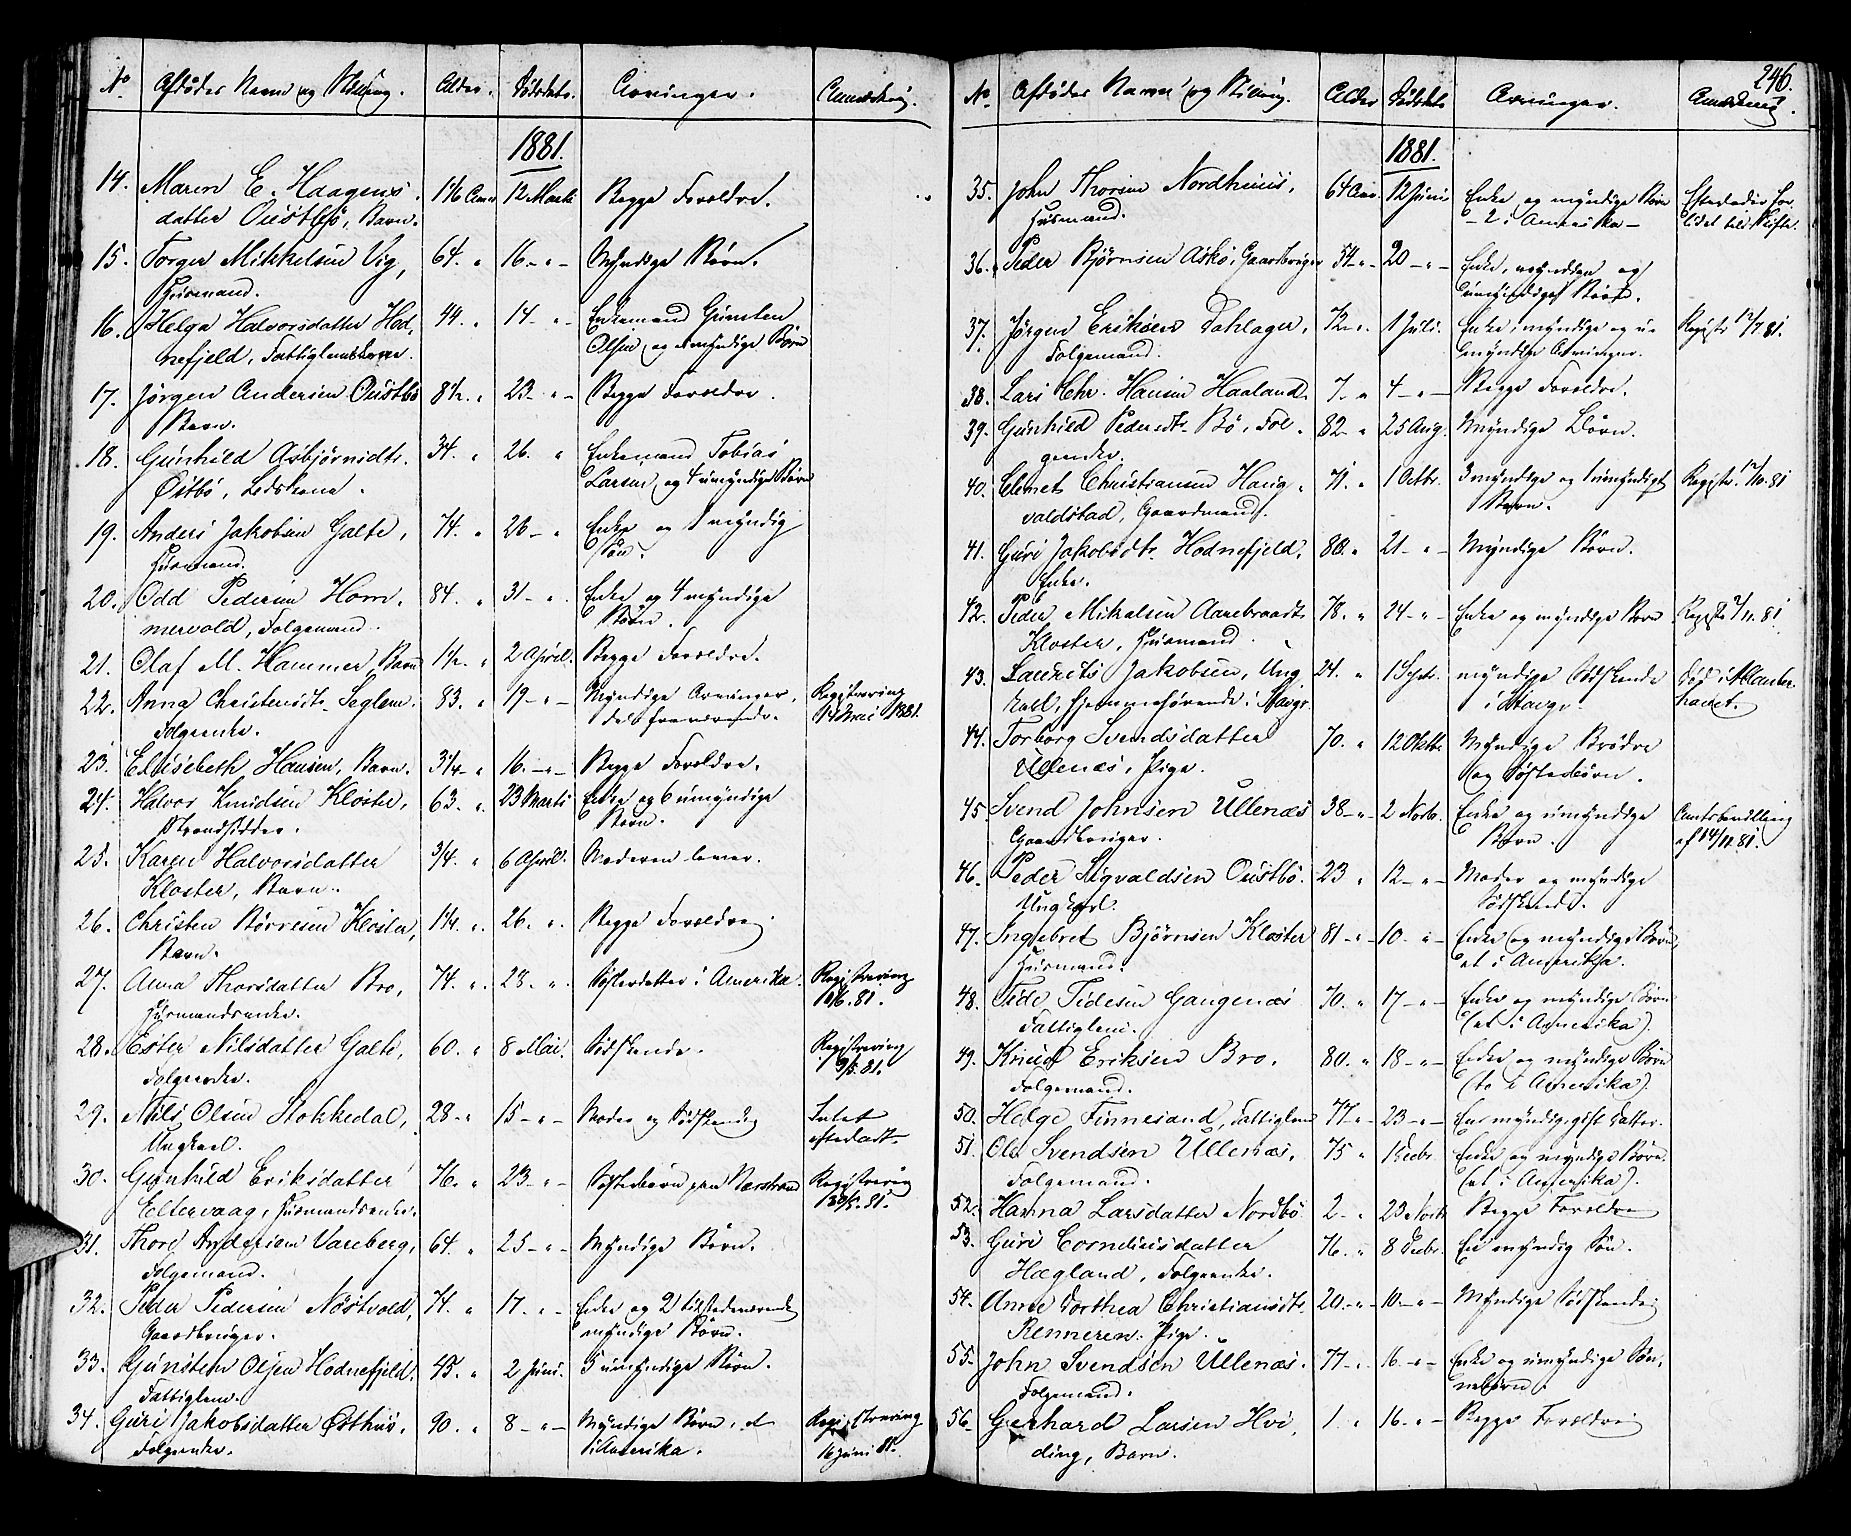 No Afdødes Navn og Stilling. Alder. Dødsdato. Arvinger. Anmærkning.
1881.
14. Maren E. Haagens- 1 1/6 Aar 12 Marts Begge Forældre.
datter Oustbø, Barn.
15. Torger Mikkelsen Vig, 64. " 16 - " - Myndige Børn.
Husmand.
16. Helga Halvorsdatter Hod- 44. " 14 - " - Enkemand Gunsten
nefjeld, Fattiglem Olsen og umyndige Børn
17. Jørgen Andersen Oustbø 8 1/2. " 23 - " - Begge Forældre.
Barn.
18. Gunhild Asbjørnsdtr. 34. " 26. " Enkemand Tobias
Østbø, Ledskone. Larsen og 4 umyndige Børn
19. Anders Jakobsen Galte, 74. " 26 - " . Enke og 1 myndig
Husmand. Søn.
20. Odd Pedersen Ham- 84. " 31 - " . Enke og 4 myndige
mervold, Folgemand. Børn.
21. Olaf M. Hammer, Barn 1 1/2. " 2 April. Begge Forældre.
22. Anna Christensdtr. Seglem. 83. " 19 - " - Myndige Arvinger, Registrering
Folgeenke. dels fraværende. 14 Mai 1881.
23. Elisebeth Hansen, Barn. 3 1/4 - " 16. - " - Begge Forældre.
24. Halvor Knudsen Kloster, 63. " 23 Marts Enke og 6 umyndige
Strandsidder. Børn.
25. Karen Halvorsdatter 3/4. " 6 April. Moderen lever.
Kloster, Barn.
26. Christen Børresen Kloster, 1 1/4. " . 26. " . Begge Forældre
Barn.
27. Anna Thorsdatter Bro, 74. " . 28. " . Søsterdatter i Amerika. Registrering
Husmandsenke. 10/6. 81.
28. Ester Nilsdatter Galte, 60. " 8 Mai. Sødskende. Registrering
Folgeenke. 81.
29. Nils Olsen Stokkedal, 28 - " 15 - " - Moder og Sødskende Intet
Ungkarl. efterladt
30. Gunhild Eriksdatter 76. " 23 - " - Søsterbørn paa Registrering
Eltervaag, Husmandsenke. 81.
31. Thore Andersen Vareberg, 64. " 25 - " - Myndige Børn.
Folgemand.
32. Peder Pedersen Nöstvold, 74. " 17. " - Enke og 2 tilstedeværende
Gaardbruger. myndige Børn.
33. Gunsten Olsen Hodnefjeld. 45. " 2 Juni. 5 umyndige Børn.
Fattiglem.
34. Guri Jakobsdatter Østhus, 90. " 8 - " - Myndige Børn, et Registrering
Folgeenke. i Amerika. 16 Juni 81.
246.
No. Afdødes Navn og Stilling. Alder Dødsdato Arvinger. Anmærkning.
1881.
35. John Thorsen Nordhuus, 64 Aar. 12 Juni Enke og myndige Børn Efterladen for-
Husmand. - 2 i Amerika - lidet til Skifte.
36. Peder Bjørnsen Askø, Gaardbruger 54 - " - 20 - " - Enke, myndige og
umyndige Børn.
37. Jørgen Eriksen Dahlager, 72 - " . 1 Juli. Enke, myndige og u- Registr. 81.
Folgemand. myndige Arvinger.
38. Lars Chr. Hansen Haaland. 7 - " 4 - " - Begge Forældre.
39. Gunhild Pedersdtr. Bö, Fol- 82 - " 25 Aug. Myndige Børn.
geenke.
40. Clemet Christiansen Haug- 71. " 1 Octbr. 3 myndige og 1 umyndigt Registr. 81
valdstad, Gaardmand. Barn.
41. Guri Jakobsdtr. Hodnefjeld, 80. " 21 - " - Myndige Børn.
Enke.
42. Peder Mikalsen Aarebraadt 78. " 24 - " - Enke og myndige Børn Registr. 81
Kloster, Husmand.
43. Laurets Jakobsen, Ung- 24. " 1 Septr. myndige Sødskende Død i Atlanter-
karl, hjemmehørende i Stavgr. i Stavgr. havet.
44. Torborg Svendsdatter 70. " 12 Oktbr. Myndige Brødre
Ullenæs, Pige. og Søsterbørn.
45 Svend Johnsen Ullenæs 38 - " - 2 Novb. Enke og umyndige Amtsbevilling
Gaardbruger. Børn. af 14/11 81.
46. Peder Sigvaldsen Oustbø. 23 " 12 - " - Moder og myndige
Ungkarl. Sødskende.
47. Ingebret Bjørnsen Kloster 81 - " - 10. " - Enke og myndige Børn,
Husmand. et i Amerika.
48. Tide Tidesen Gangenæs 70. " 17 - " - Enke og myndige Børn
Fattiglem. (et i Amerika).
49. Knud Eriksen Bro. 80. " 18 - " - Enke og myndige Børn
Folgemand. (to i Amerika).
50. Helge Finnesand, Fattiglem 77 - " - 23 - " - En myndig gift Datter.
51. Ole Svendsen Ullenæs, 75 " 1 Decbr. Enke og myndige Børn
Folgemand. (et i Amerika).
52. Hanna Larsdatter Nordbö 2 - " 23 Novb. Begge Forældre
53. Guri Corneliusdatter 76. " 8 Decbr. En myndig Søn.
Hægland, Folgeenke.
54. Anne Dorthea Christiansdtr. 20 - " - 10 - " - Myndige Sødskende
Renneren. Pige.
55. John Svendsen Ullenæs. 77 - " 16 - " - Enke og umyndige Søn-
Folgemand. nebørn.
56. Gerhard Larsen Hvi- 1. " 16 - " - Begge Forældre
ding, Barn.